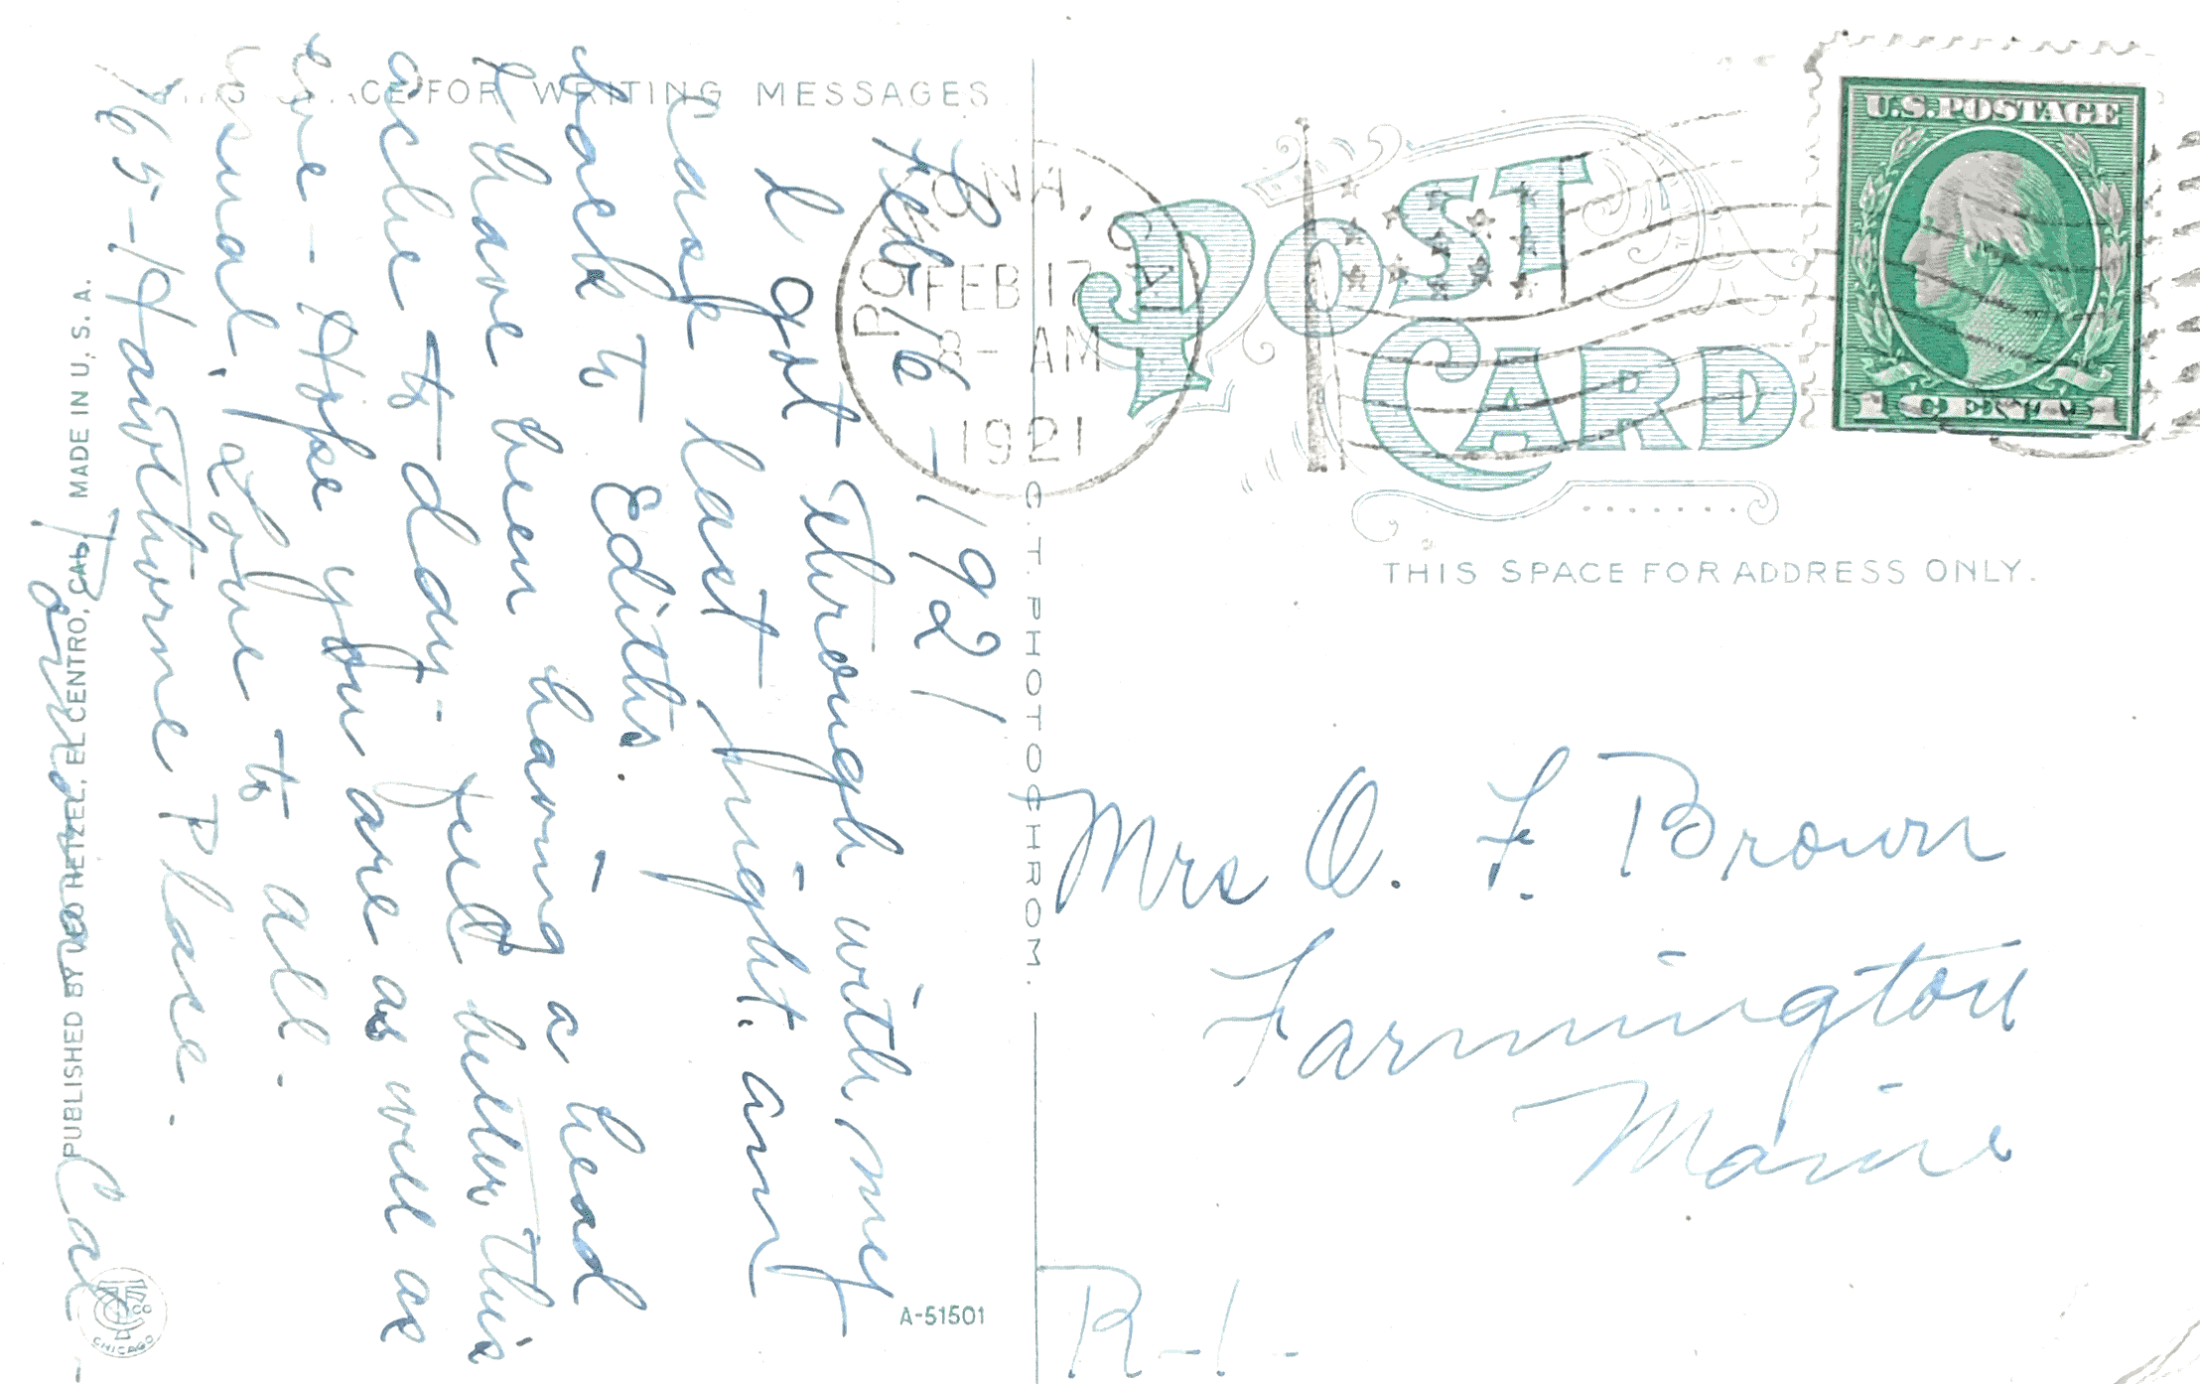 THIS SPACE FOR WRITING MESSAGES
Feb 16 - 1921
I got through with my
Case last night. am
back to Ediths.
I have been having a head
ache to day - feel better this
eve - Hope you are as well as
usual, Love to all.
765 - Hawthorne Place.
Pomona Cal -
PUBLISHED BY LEO HETZEL, EL CENTRO, CAL. MADE IN U. S. A.
CTCO CHICAGO
A-51501
C. T. PHOTOCHROM.
POMONA, CAL
FEB 17
8 - AM
1921
POST CARD
U.S. POSTAGE
1 CENT 1
THIS SPACE FOR ADDRESS ONLY.
Mrs O. F. Brown
Farmington
Maine
R-1-